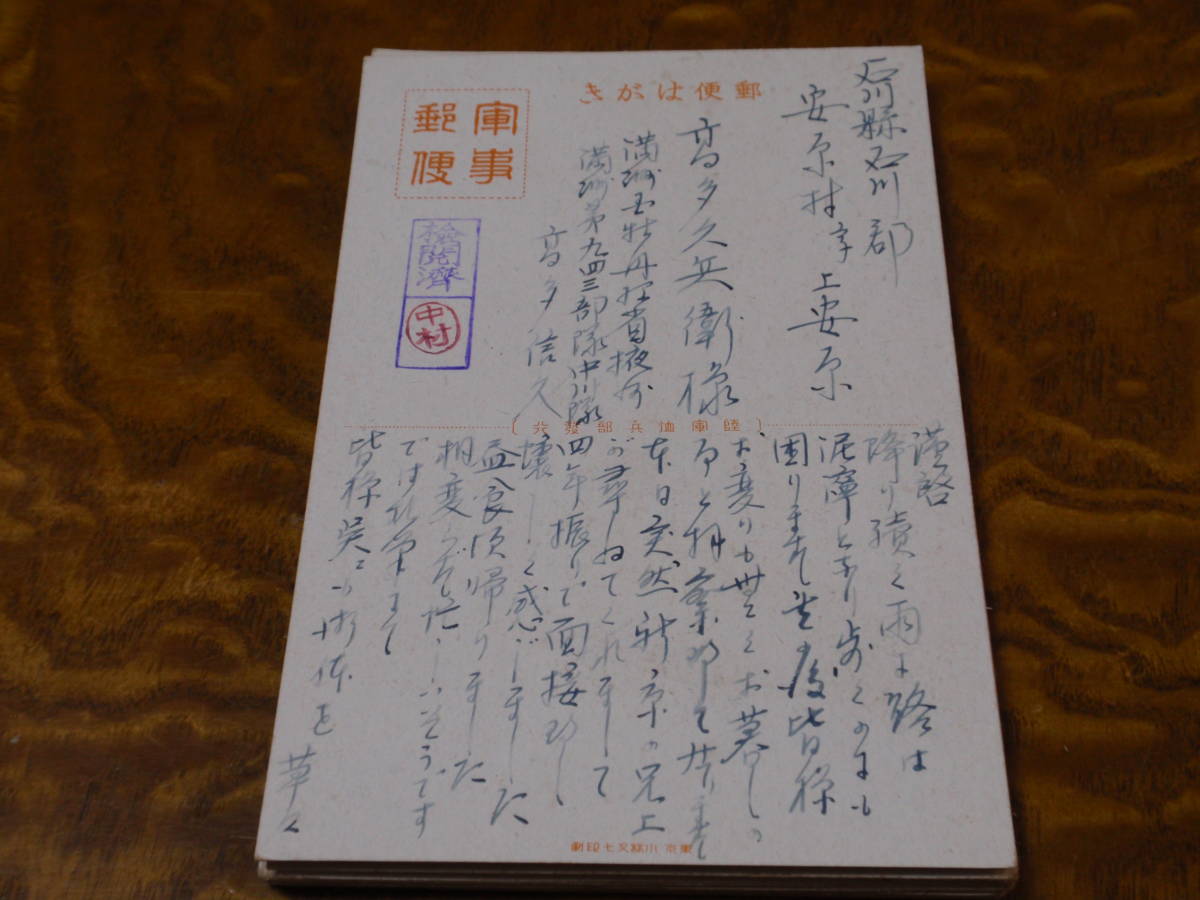 郵便はがき
軍事
郵便
検閲済
中村
石川縣石川郡
安原村字上安原
高多久兵衛様
満洲国牡丹江省掖河
満洲第九四三部隊中川隊
高多信久
陸軍恤兵部發行
謹啓
降り續く雨に路は
泥濘となり歩くのにも
困ります 其の後皆様
お変りも無くお暮しの
事と拝察致して居ります
本日突然新京の兄上
が尋ねてくれまして
四年振りで面接致し
懐しく感じました
益良 帰りました
相変らず忙しいそうです
です
皆様 御体を
草々
東京 小林又七印刷